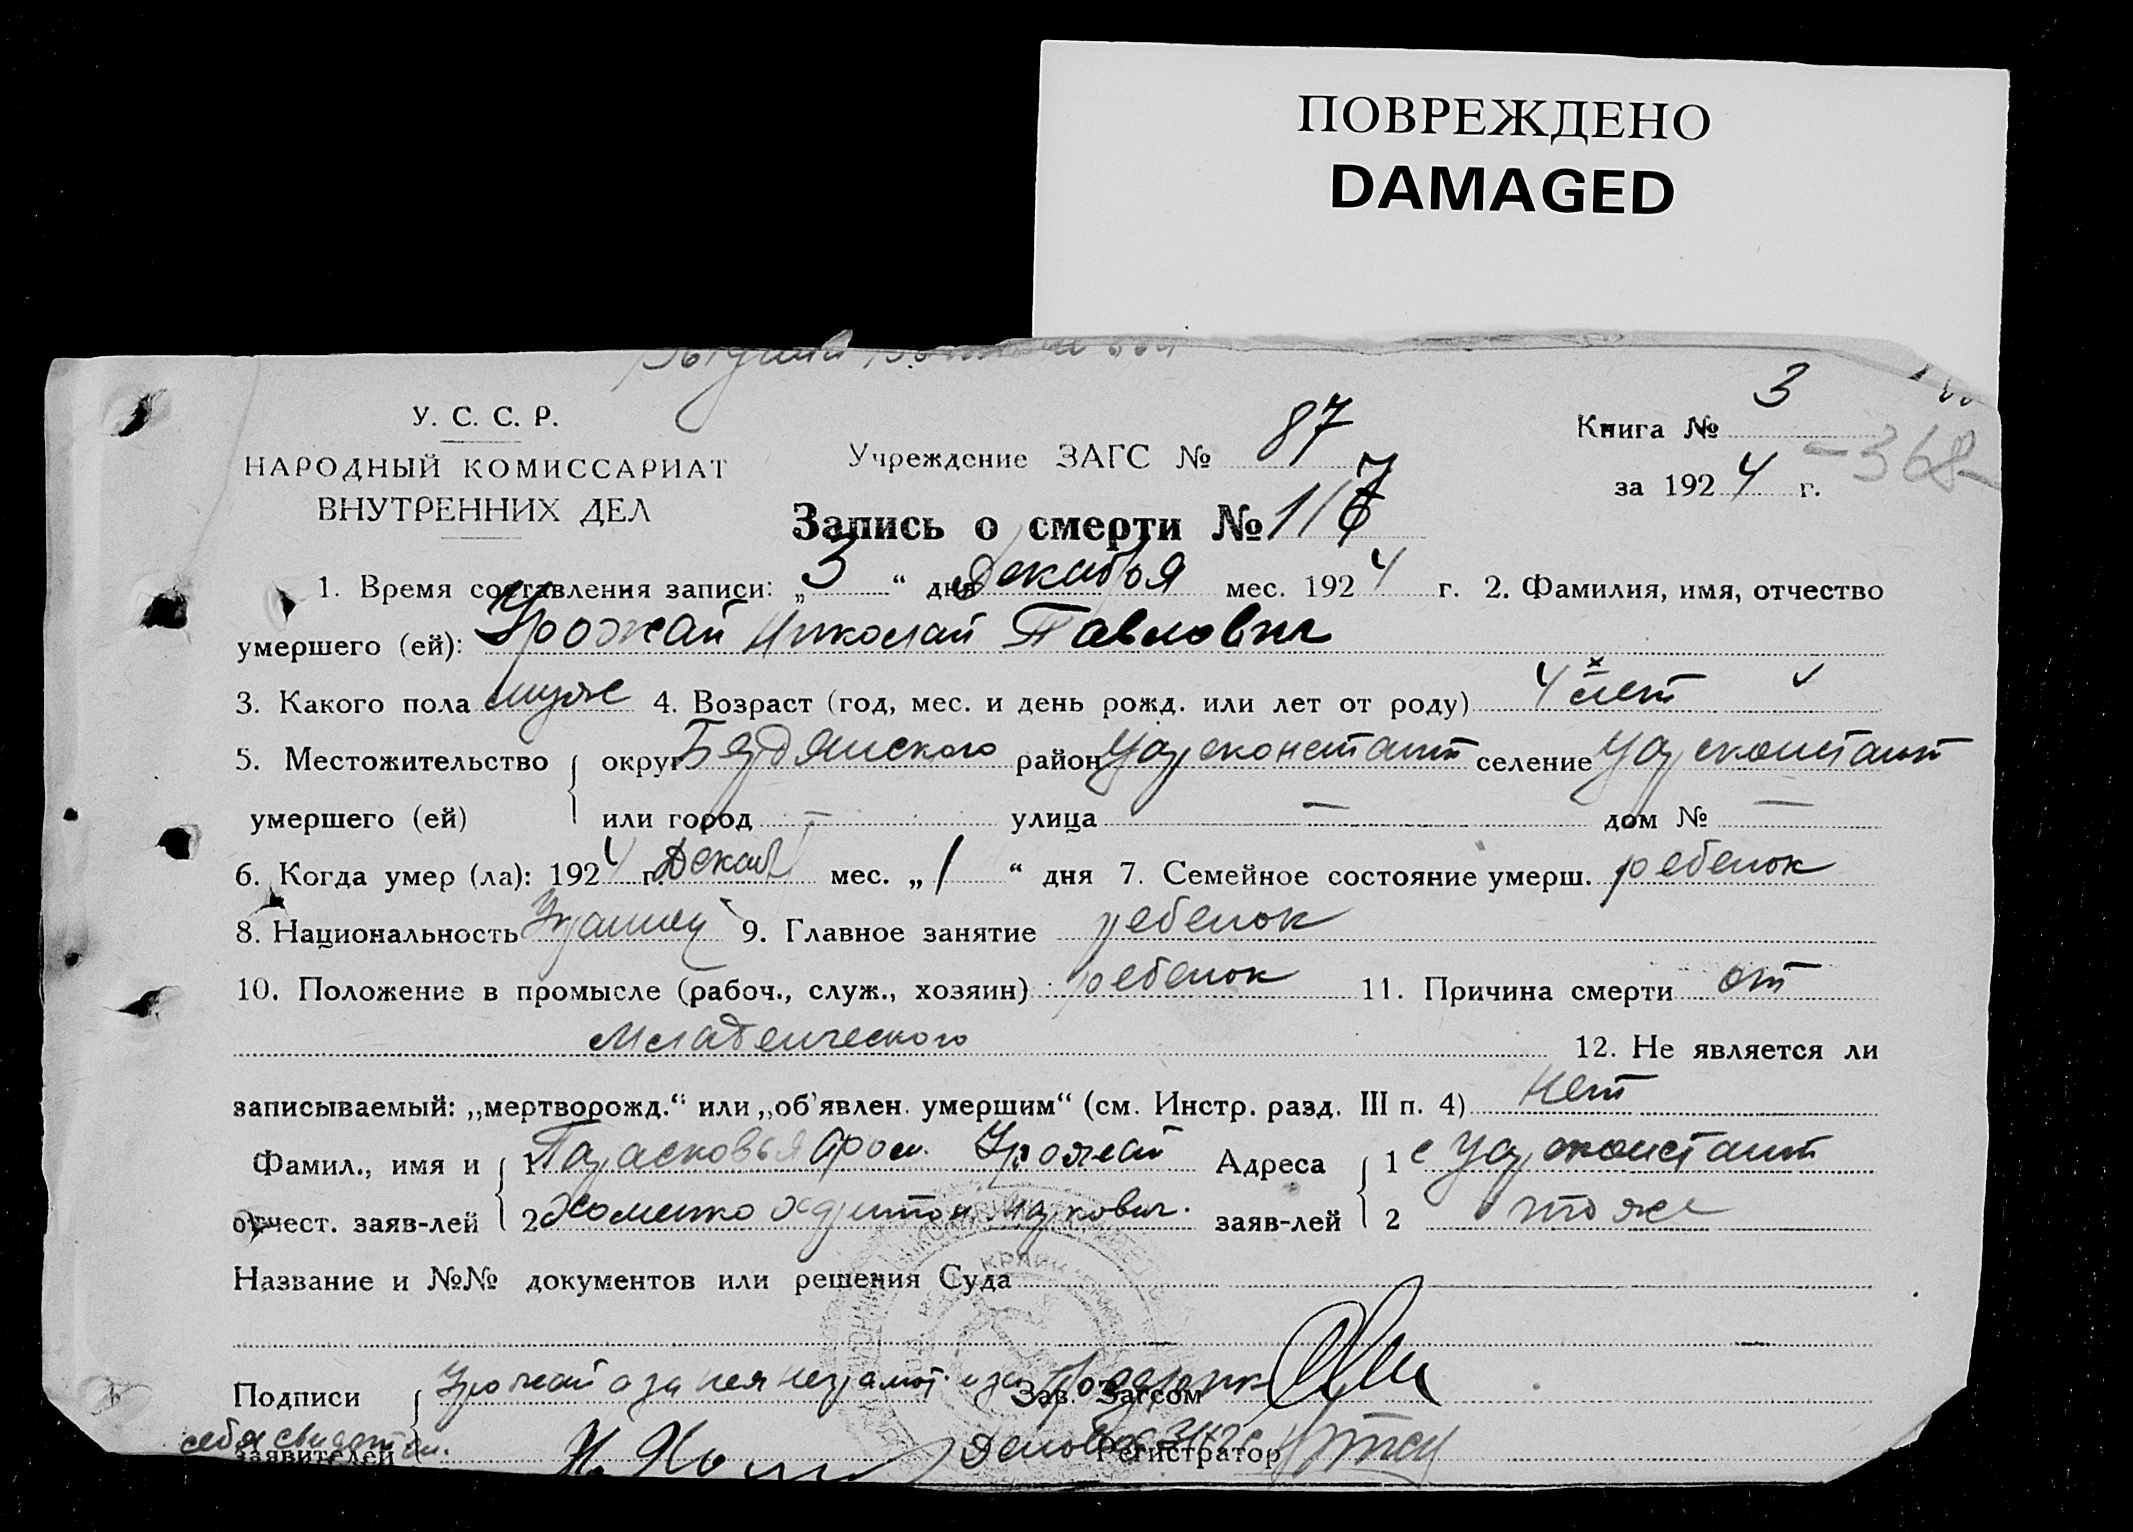 ПОВРЕЖДЕНО
DAMAGED
У. С. С. Р.
НАРОДНЫЙ КОМИССАРИАТ
ВНУТРЕННИХ ДЕЛ
Учреждение ЗАГС № 87
Книга № 3
за 1924 г. -368-
Запись о смерти № 117
1. Время составления записи: „3“ дня Декабря мес. 1924 г. 2. Фамилия, имя, отчество
умершего (ей): Урожай Николай Павлович
3. Какого пола муж 4. Возраст (год, мес. и день рожд. или лет от роду) 4 лет
5. Местожительство округ Бердянского район Царсконстант селение Царсконстант
умершего (ей) или город — улица — дом № —
6. Когда умер (ла): 1924 г. Декаб мес. „1“ дня 7. Семейное состояние умерш. ребенок
8. Национальность Украинец 9. Главное занятие ребенок
10. Положение в промысле (рабоч., служ., хозяин) ребенок 11. Причина смерти от
младенческого 12. Не является ли
записываемый: „мертворожд.“ или „об'явлен. умершим“ (см. Инстр. разд. III п. 4) нет
Фамил., имя и 1 Парасковья Фом. Урожай Адреса 1 с Царсконстант
отчест. заяв-лей 2 Хоменко Харитон Маркович. заяв-лей 2 тоже
Название и №№ документов или решения Суда
Подписи Урожай а за нея неграмот. и за Зав. Загсом
себя
заявителей Н. Хом Регистратор